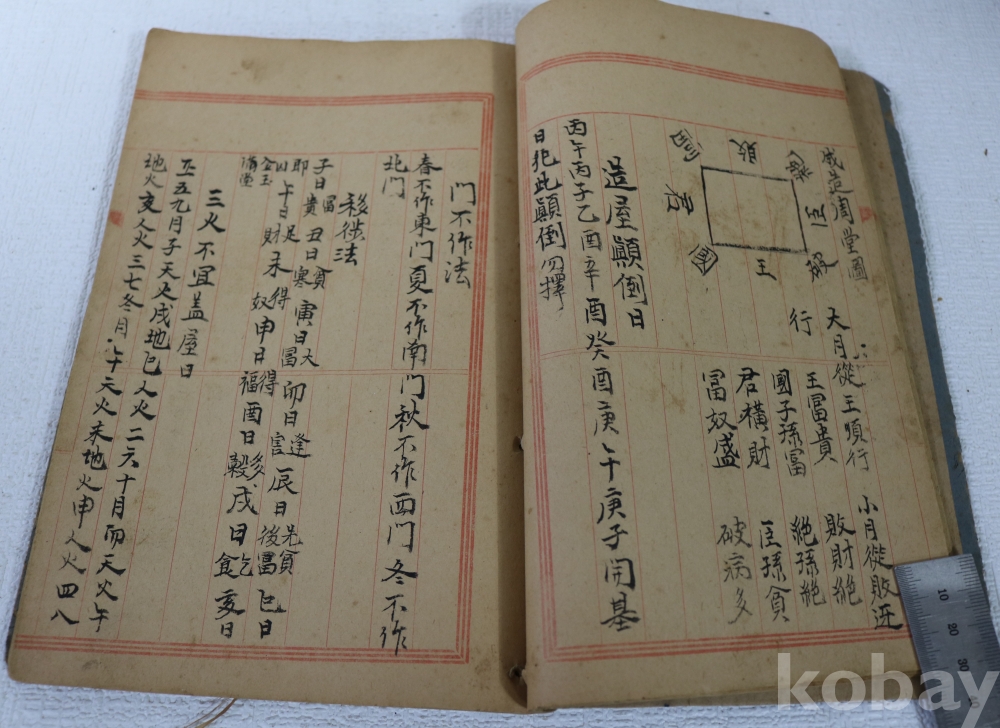 成造周堂圖
大月從王順行
小月從敗逆
行
王富貴
敗財絕
國子孫富
絕孫絕
君橫財
臣孫貧
富奴盛
破病多
王
敗
造屋顚倒日
丙午丙子乙酉辛酉癸酉庚午庚子開基
日犯此顚倒勿擇
门不作法
春不作東门夏不作南门秋不作西门冬不作
北门
移徙法
子日富貴丑日貧寒寅日大富卯日逢害辰日先貧後富巳日
午日足財未得奴申日得福酉日多穀戌日乞食亥日
即
金玉滿堂
三火不宜盖屋日
正五九月子天火戌地巳人火二六十月卯天火午
地火亥人火三七冬月午天火未地火申人火四八
kobay
10
20
30